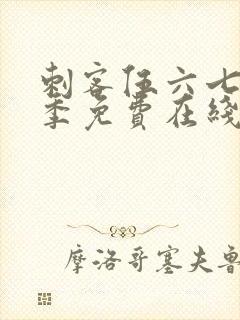 刺客伍六七
季免費在綫
摩洛哥塞夫魯